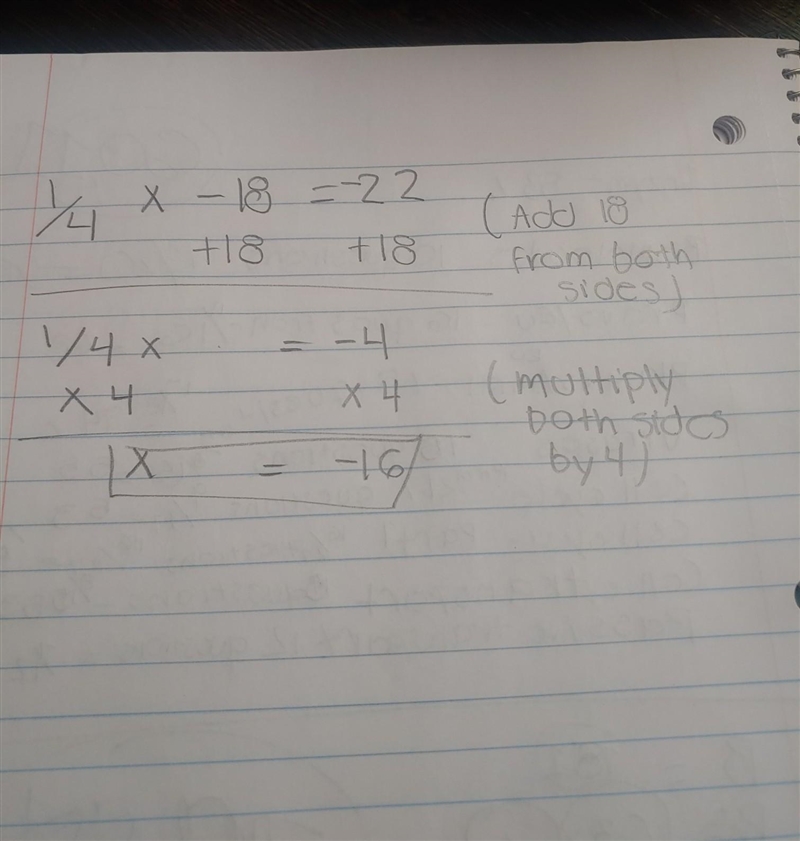 1/4 x - 18 = -22 (Add 18
+18 +18 from both
sides)
1/4 x = -4
x 4 x 4 (multiply
both sides
x = -16 by 4)